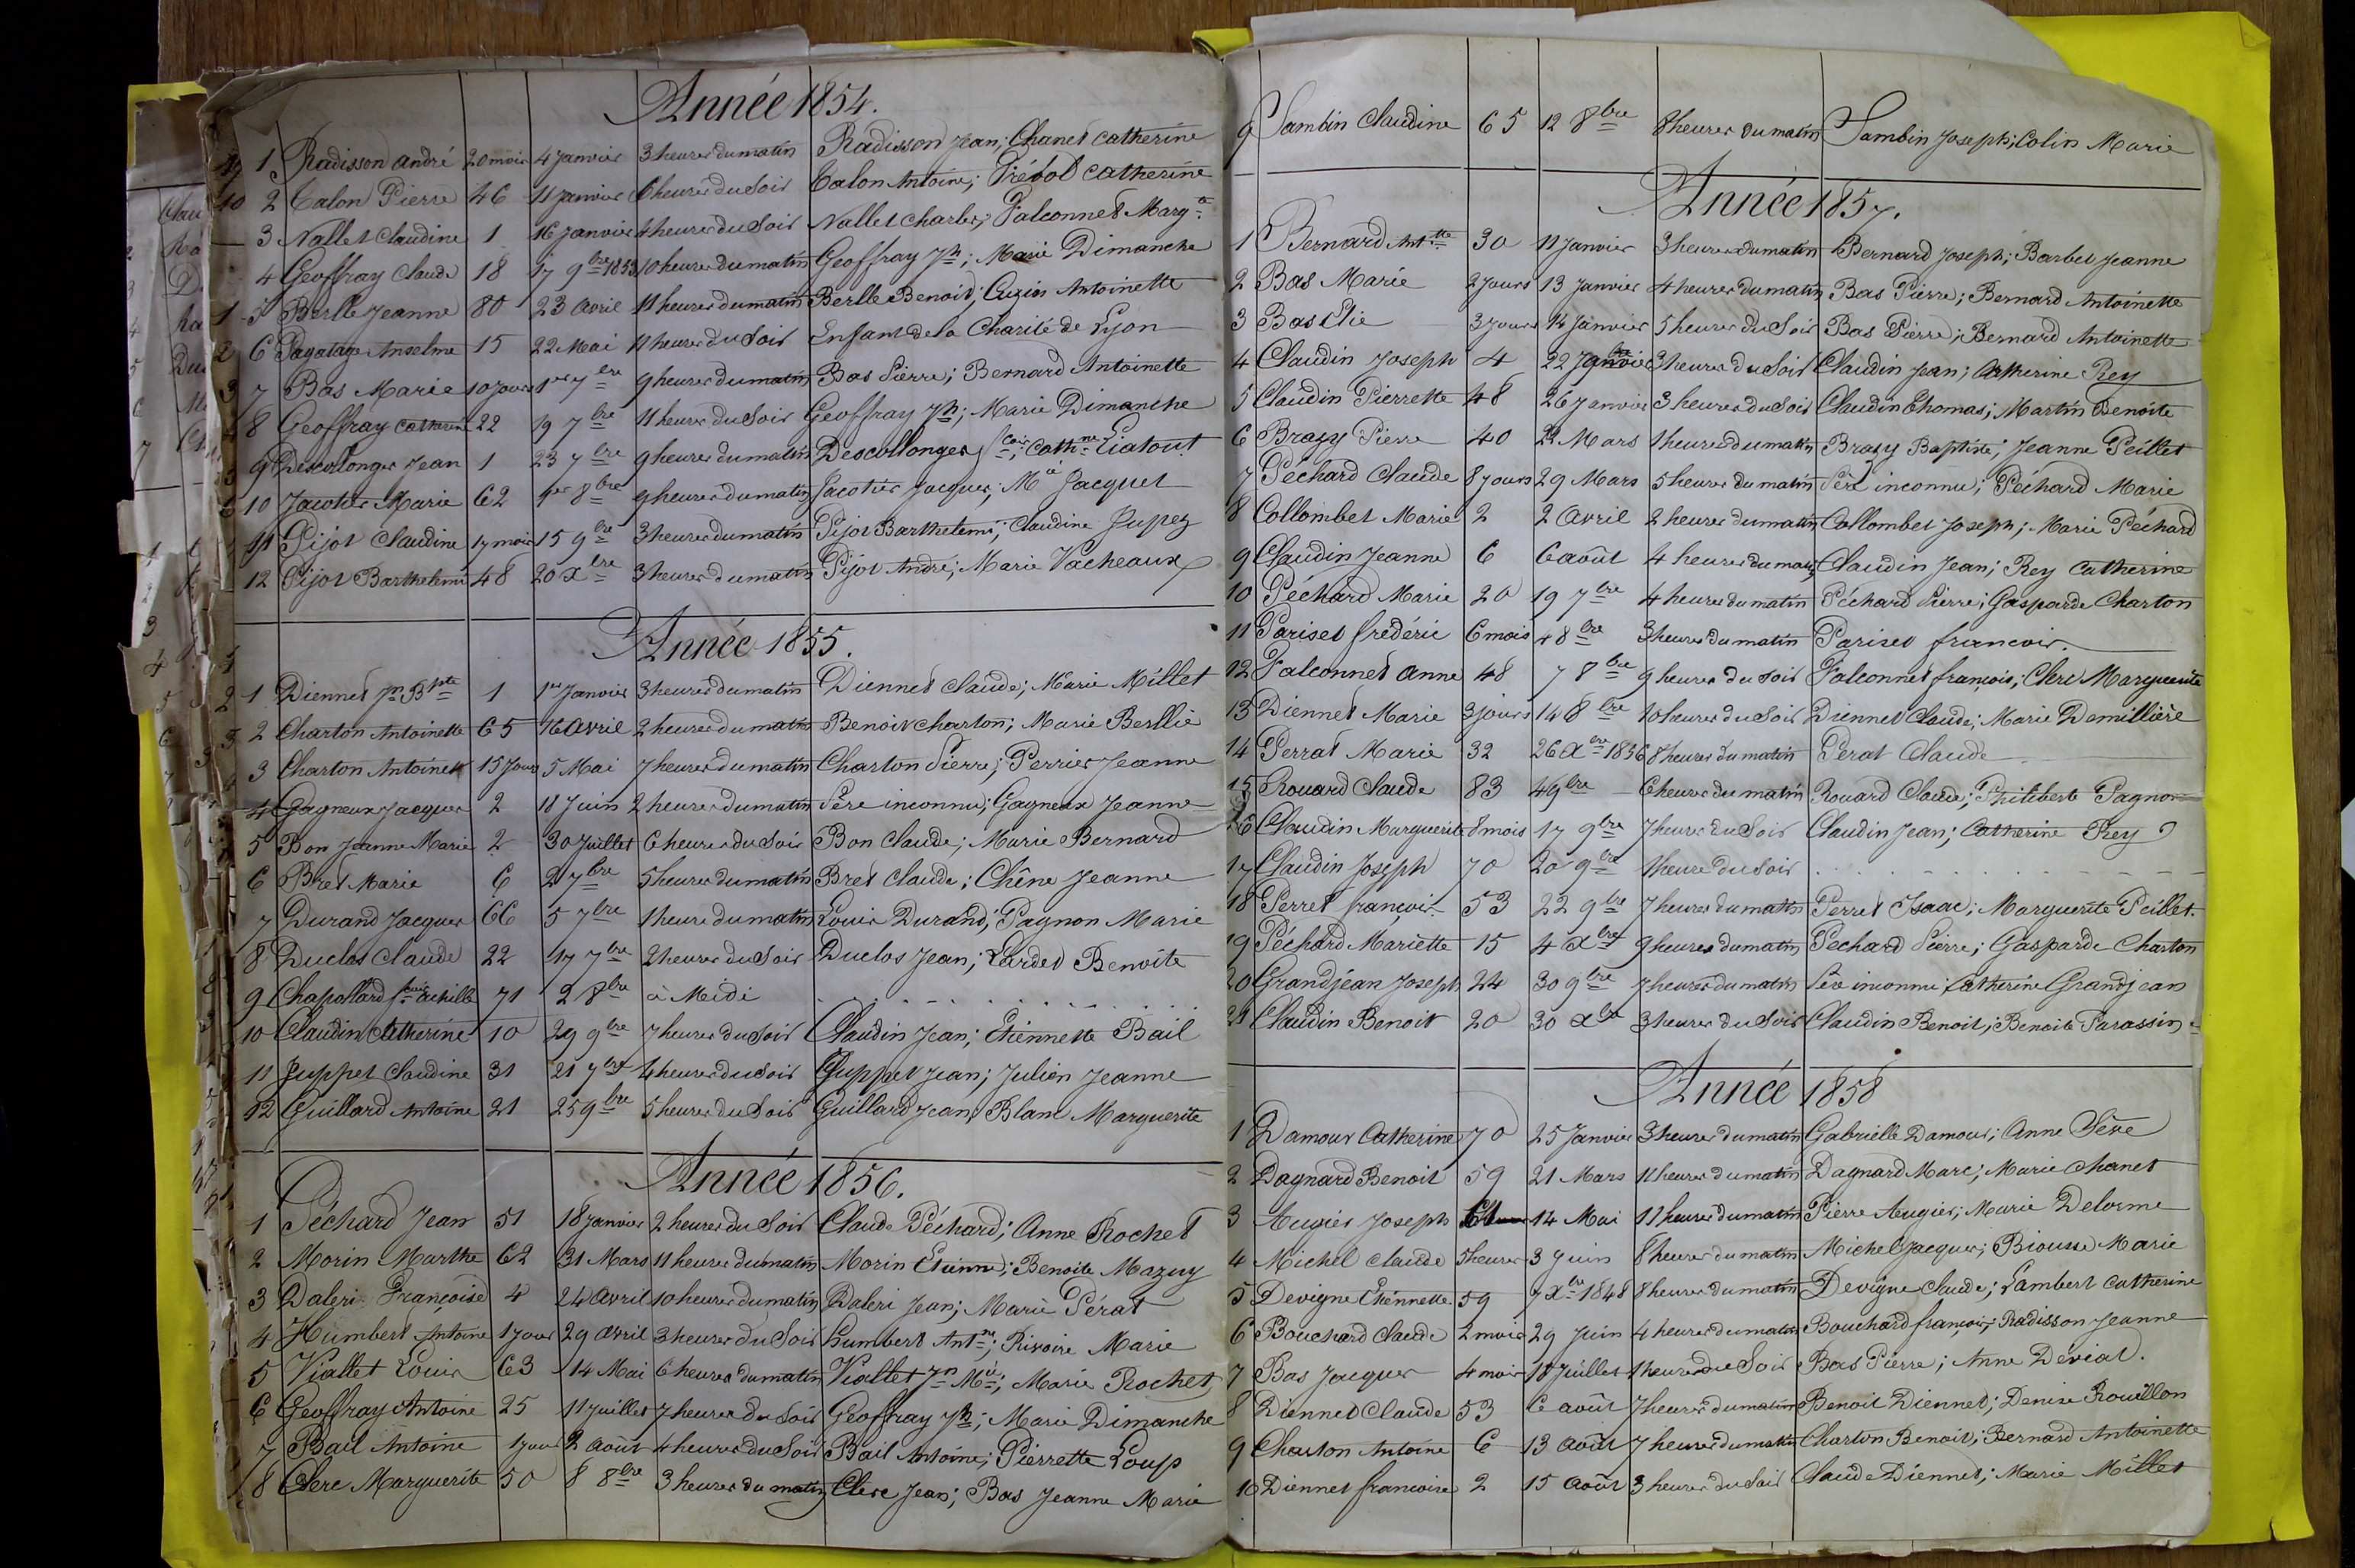 Année 1854.
1 Radisson andré 20 mois 4 Janvier 3 heures du matin Radisson Jean; Chanet Catherine
2 Calon Pierre 46 11 Janvier 6 heures du Soir Calon Antoine; Prévôt Catherine
3 Nallet Claudine 1 16 Janvier 4 heures du Soir Nallet Charles; Falconnet Marg.te
4 Geoffray Claude 18 17 9bre 1853 10 heures du matin Geoffray Jh; Marie Dimanche
5 Berlle Jeanne 80 23 Avril 11 heures du matin Berlle Benoit; Antoinette
6 Anselme 15 22 Mai 11 heures du Soir Enfant de la Charité de Lyon
7 Bas Marie 10 jours 1er 7bre 9 heures du matin Bas Pierre; Bernard Antoinette
8 Geoffray Catherine 22 19 7bre 11 heures du Soir Geoffray Jh; Marie Dimanche
9 Descollonges Jean 1 23 7bre 9 heures du matin Descollonges fcois; Cathne Liatout
10 Jacotier Marie 62 1er 8bre 9 heures du matin Jacotier Jacques; Mie Jacquet
11 Pijot Claudine 17 mois 15 9bre 3 heures du matin Pijot Barthelemi; Claudine Jupey
12 Pijot Barthelemi 48 20 Xbre 3 heures du matin Pijot André; Marie Vacheaux
Année 1855.
1 Diennet Jn Bpte 1 1er Janvier 3 heures du matin Diennet Claude; Marie Millet
2 Charton Antoinette 65 16 Avril 2 heures du matin Benoit Charton; Marie Berllie
3 Charton Antoinette 15 Jours 5 Mai 7 heures du matin Charton Pierre; Perrier Jeanne
4 Gagneux Jacques 2 18 Juin 2 heures du matin Père inconnu; Gagneux Jeanne
5 Bon Jeanne Marie 2 30 Juillet 6 heures du Soir Bon Claude; Marie Bernard
6 Bret Marie 6 2 7bre 5 heures du matin Bret Claude; Chêne Jeanne
7 Durand Jacques 66 5 7bre 1 heure du matin Louis Durand; Pagnon Marie
8 Duclos Claude 22 17 7bre 2 heures du Soir Duclos Jean; Lardet Benoîte
9 Chapollard fcois Achille 71 2 8bre à Midi . . . . . . . . . .
10 Claudin Catherine 10 29 9bre 7 heures du Soir Claudin Jean; Etiennette Bail
11 Juppet Claudine 31 21 7bre 4 heures du Soir Juppet Jean; Julien Jeanne
12 Guillard Antoine 21 25 9bre 5 heures du Soir Guillard Jean; Blanc Marguerite
Année 1856.
1 Péchard Jean 51 18 Janvier 2 heures du Soir Claude Péchard; Anne Rochet
2 Morin Marthe 62 31 Mars 11 heures du matin Morin Etienne; Benoite Mazuy
3 Daleri Françoise 4 24 Avril 10 heures du matin Daleri Jean; Marie Pérat
4 Humbert Antoine 1 jour 29 Avril 3 heures du Soir humbert Antne; Rivoire Marie
5 Viallet Louis 63 14 Mai 6 heures du matin Viallet Jn Mie; Marie Rochet
6 Geoffray Antoine 25 11 Juillet 7 heures du Soir Geoffray Jh; Marie Dimanche
7 Bail Antoine 1 jour 2 Août 4 heures du Soir Bail Antoine; Pierrette Loup
8 Clere Marguerite 50 8 8bre 3 heures du matin Clere Jean; Bas Jeanne Marie
9 Sambin Claudine 65 12 8bre 8 heures du matin Sambin Joseph; Colin Marie
Année 1857.
1 Bernard Anttte 30 11 Janvier 3 heures du matin Bernard Joseph; Barbet Jeanne
2 Bas Marie 2 jours 13 Janvier 4 heures du matin Bas Pierre; Bernard Antoinette
3 Bas Elie 3 jours 14 Janvier 5 heures du Soir Bas Pierre; Bernard Antoinette
4 Claudin Joseph 4 22 Janvier 3 heures du Soir Claudin Jean; Catherine Rey
5 Claudin Pierrette 48 26 Janvier 3 heures du Soir Claudin Thomas; Martin Benoite
6 Brazy Pierre 40 22 Mars 1 heure du matin Brazy Baptiste; Jeanne Peillet
7 Péchard Claude 8 jours 29 Mars 5 heures du matin Père inconnu; Péchard Marie
8 Collombet Marie 2 2 Avril 2 heures du matin Collombet Joseph; Marie Péchard
9 Claudin Jeanne 6 6 août 4 heures du matin Claudin Jean; Rey Catherine
10 Péchard Marie 20 19 7bre 4 heures du matin Péchard Pierre; Gasparde Charton
11 Pariset frédéric 6 mois 4 8bre 3 heures du matin Pariset francois.
12 Falconnet Anne 48 7 8bre 9 heures du soir Falconnet françois; Clere Marguerite
13 Diennet Marie 3 jours 14 8bre 10 heures du Soir Diennet Claude; Marie Demillière
14 Perrat Marie 32 26 Xbre 1856 8 heures du matin Perat Claude
15 Rouard Claude 83 4 9bre 6 heures du matin Rouard Claude; Philiberte Pagnon
16 Claudin Marguerite 8 mois 17 9bre 7 heures du Soir Claudin Jean; Catherine Rey
17 Claudin Joseph 70 20 9bre 1 heure du Soir . . . . . . . . . .
18 Perret françois 53 22 9bre 7 heures du matin Perret Isaac; Marguerite Peillet.
19 Péchard Mariette 15 4 Xbre 9 heures du matin Pechard Pierre; Gasparde Charton
20 Grandjean Joseph 24 30 9bre 7 heures du matin Père inconnu; Catherine Grandjean
21 Claudin Benoit 20 30 Xbre 3 heures du Soir Claudin Benoit; Benoite Parassin
Année 1858
1 Damour Catherine 70 25 Janvier 3 heures du matin Gabrielle Damour; Anne Sève
2 Dagnard Benoit 59 21 Mars 11 heures du matin Dagnard Marc; Marie Chanet
3 Augier Joseph 61 14 Mai 11 heures du matin Pierre Augier; Marie Delorme
4 Michel Claude 5 heures 3 Juin 8 heures du matin Michel Jacques; Biousse Marie
5 Devigne Etiennette 59 7 Xbre 1848 8 heures du matin Devigne Claude; Lambert Catherine
6 Bouchard Claude 2 mois 29 Juin 4 heures du matin Bouchard françois; Radisson Jeanne
7 Bas Jacques 4 mois 18 Juillet 1 heure du Soir Bas Pierre; Anne Dériat.
8 Diennet Claude 53 6 août 7 heures du matin Benoit Diennet; Denise Rouillon
9 Charton Antoine 6 13 Août 7 heures du matin Charton Benoit; Bernard Antoinette
10 Diennet francoise 2 15 Août 3 heures du Soir Claude Diennet; Marie Millet